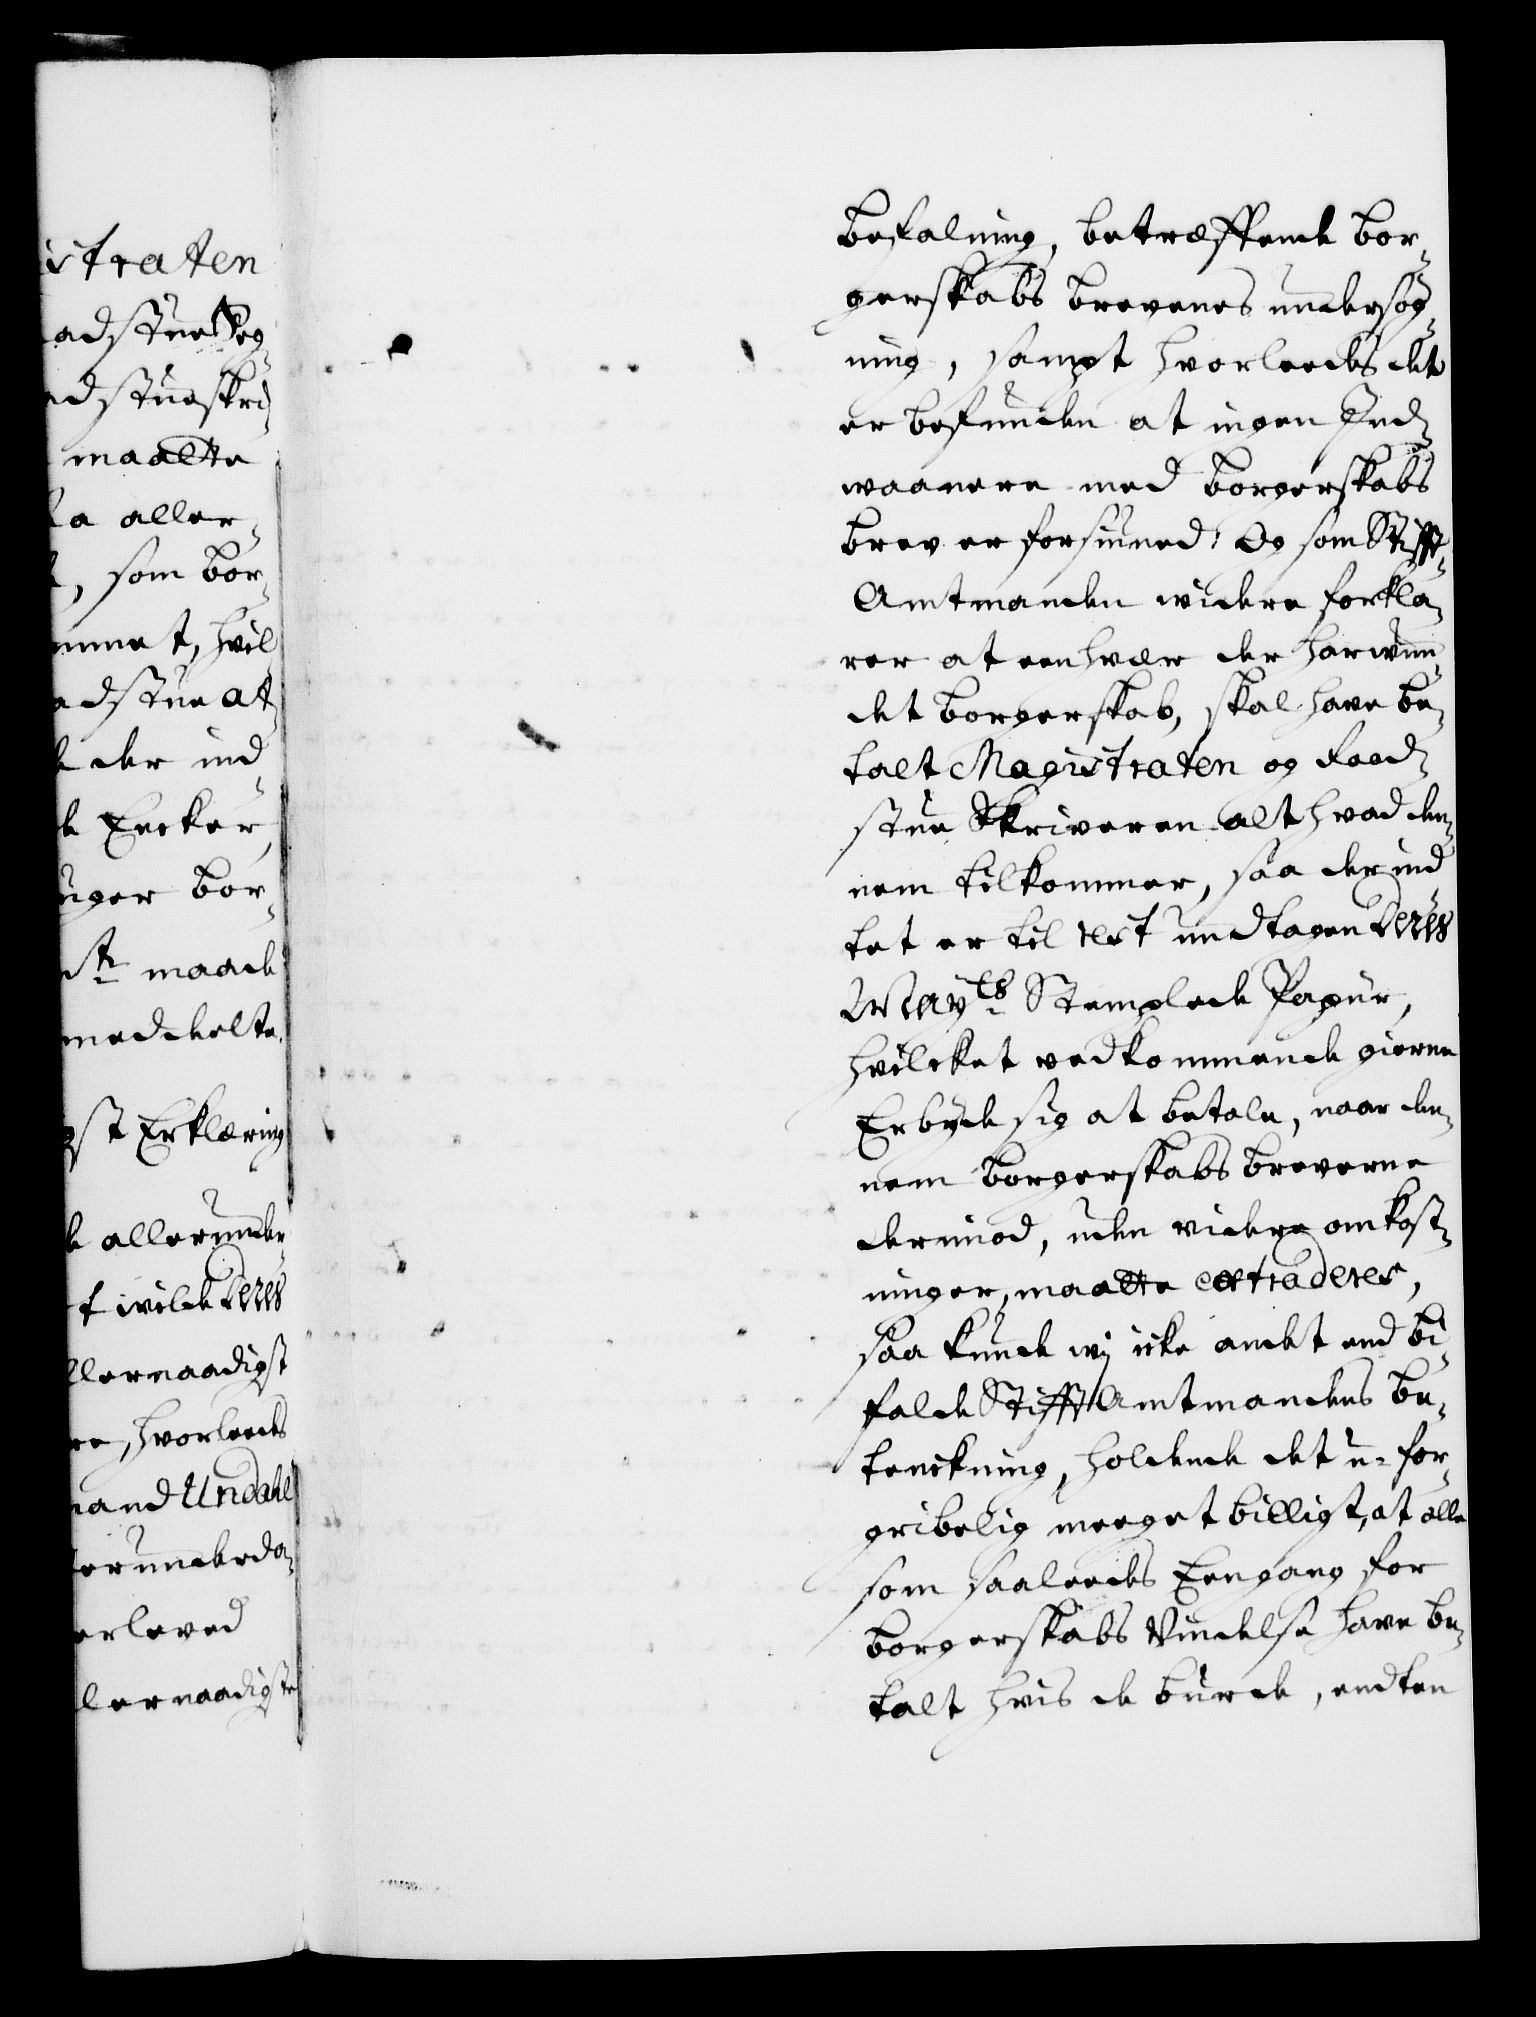 istraten
adstue Reg¬
adstueskri
maatte
ka aller¬
, som bor¬
ommet, hvil
adstue at
der ind¬
Encker,
uger bor¬
maade
meddelte.
gst Erklæring
allerunder¬
t wilde Deris
llernaadigst
re, hvorleedis
mand Undahl
erunderda¬
erleved
lernaadigste
befalning, betræffende bor¬
gerskabs brevenes undersøg¬
ning, sampt hvorleedis det
er befunden at ingen Ind¬
waanere med borgerskabs
brev er forsiuned: Og som Stifft¬
Amtmanden widere forkla¬
rer at een hver der har wun¬
det borgerskab, skal have be¬
talt Magistraten og Raad¬
stue Skriveren alt hvad den¬
nem tilkommer, saa der ind¬
tet er til rest undtagen Deris
Mayts Stemplede Papiir,
hvilcket vedkommende gierne
Erbyde sig at betale, naar den¬
nem borgerskabs breverne
derimod, uden videre omkost¬
ninger, maatte extraderes,
saa kunde wj icke andet end bi¬
falde Stifft Amtmandens be¬
tenckning, holdende det u-for¬
gribelig meeget billigst, at alle
som saaleedis Eengang for
borgerskabs Vindelse have be¬
talt hvis de burde, endten